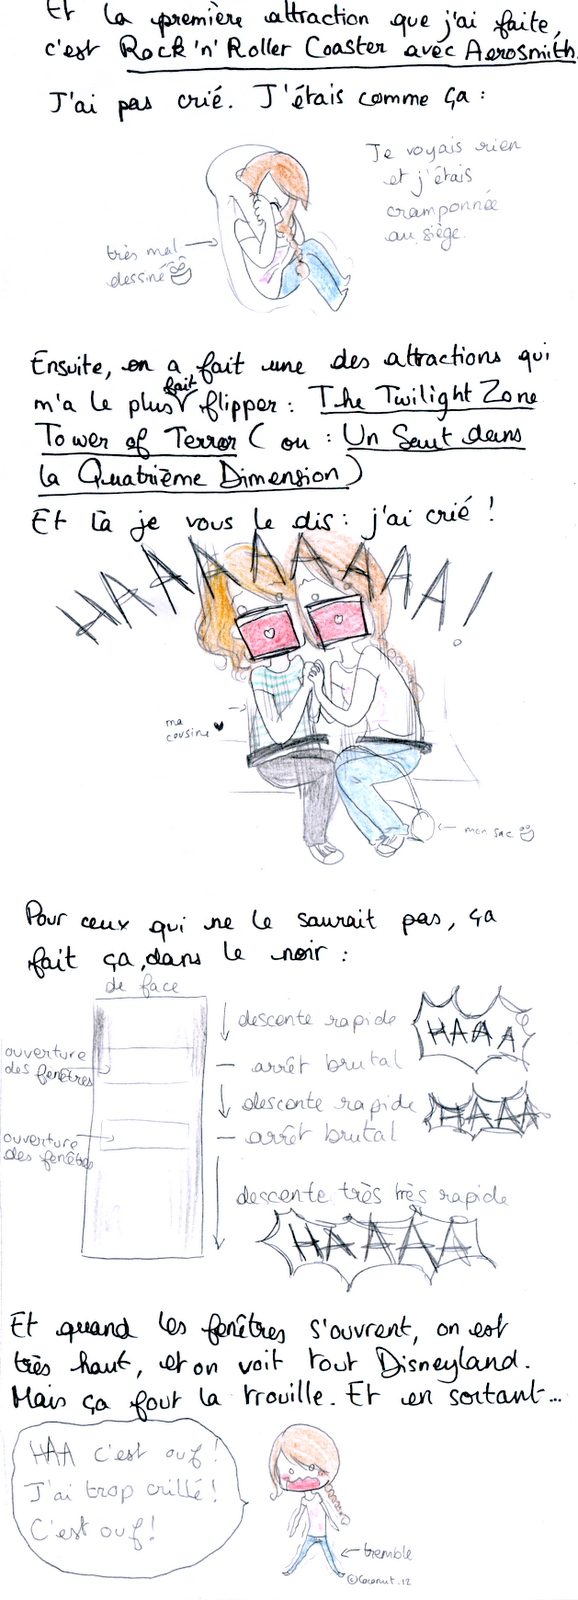 Et la première attraction que j'ai faite,
c'est Rock'n'Roller Coaster avec Aerosmith.
J'ai pas crié. J'étais comme ça :
Je voyais rien
et j'étais
cramponnée
au siège.
très mal
dessiné
Ensuite, on a fait une des attractions qui
m'a le plus fait flipper : The Twilight Zone
Tower of Terror ( ou : Un Saut dans
la Quatrième Dimension )
Et là je vous le dis : j'ai crié !
HAAAAAAAAA!
ma
cousine ♥
mon sac
Pour ceux qui ne le saurait pas, ça
fait ça, dans le noir :
de face
descente rapide
HAAA
ouverture
des fenêtres
arrêt brutal
descente rapide
HAAA
ouverture
des fenêtres
arrêt brutal
descente très très rapide
HAAAA
Et quand les fenêtres s'ouvrent, on est
très haut, et on voit tout Disneyland.
Mais ça fout la trouille. Et en sortant...
HAA c'est ouf !
J'ai trop crillé !
C'est ouf !
tremble
©Coconut.12